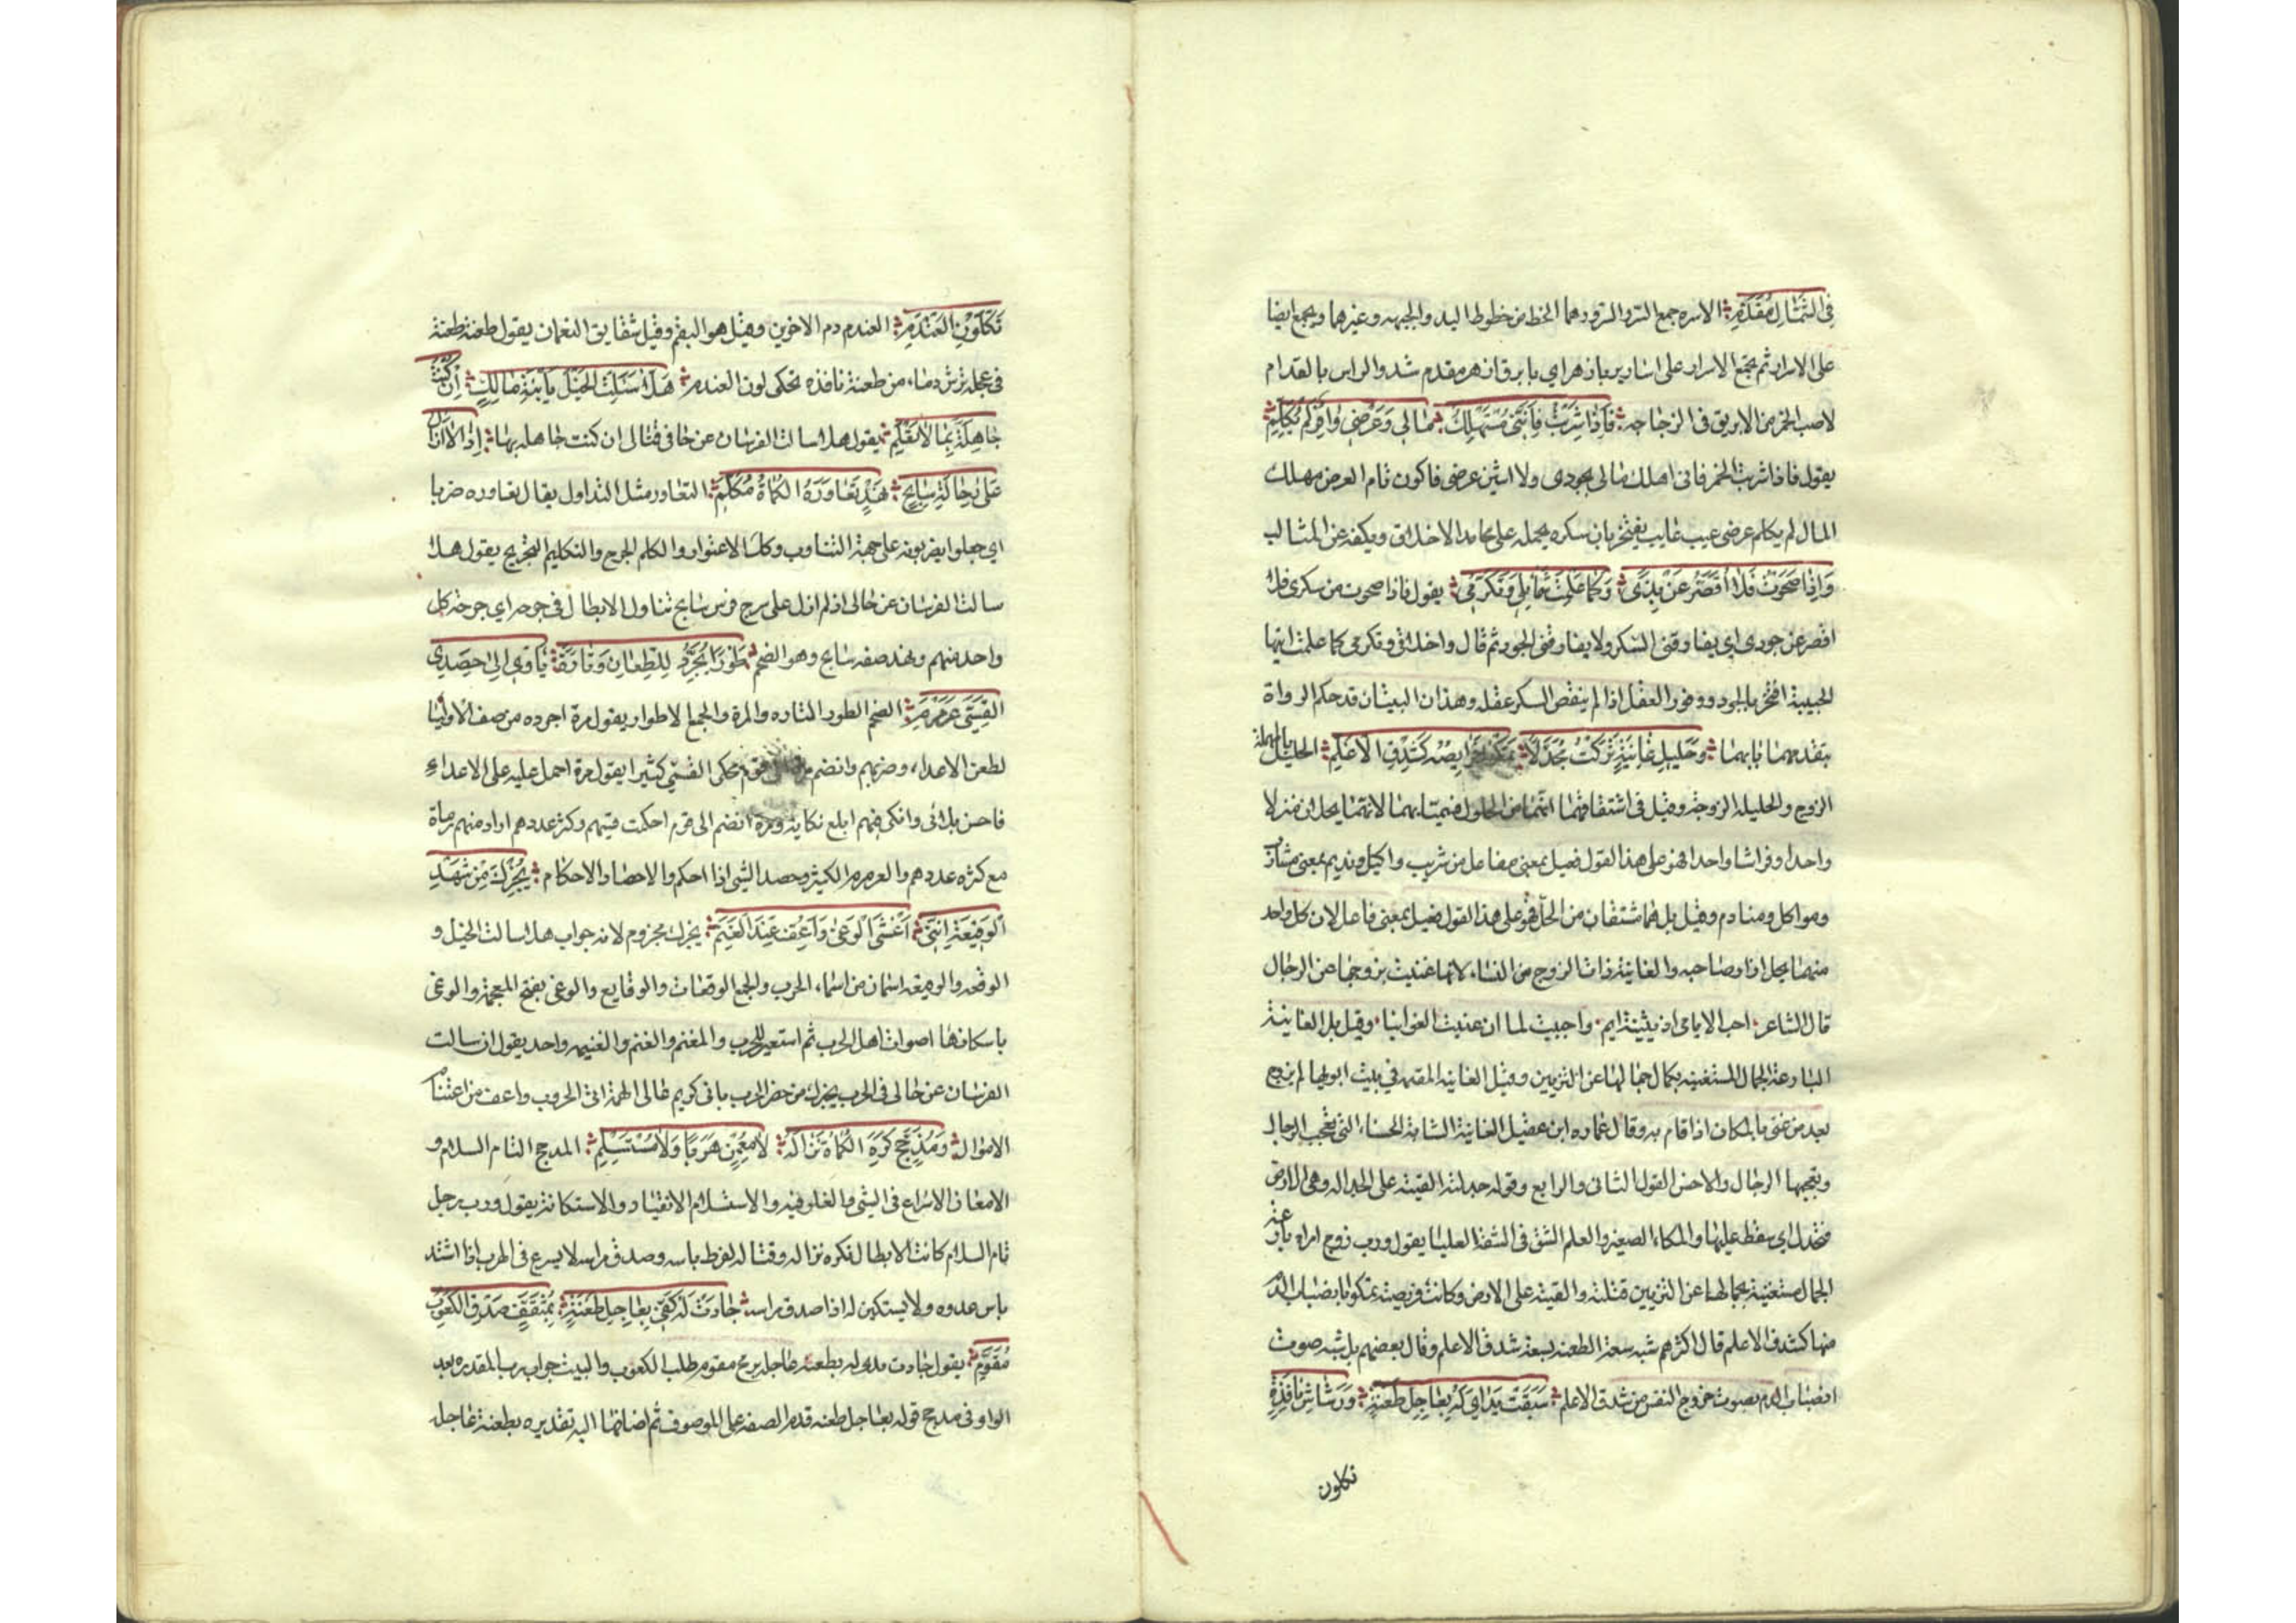 في الشمال مفدم الاسرة جمع السر والسرر وهما الخط من خطوط اليد والجبهه وغيرها ويجمع ايضا
على الاسرار ثم يجمع الاسرار على اسارير بازهر اي بابريق ازهر مفدم شد والراس بالفدام
لاصب الخمر من الابريق في الزجاجه فَاِذَا شرِبْتُ فَاِنَّنِي مُسْتَهْلِكٌ مَالي وَعِرْضِي وَافِرٌ لَمْ يُكْلَمِ
يقول فاذا شربت الخمر فاني اهلك مالي بجودي ولا اشين عرضي فاكون تام العرض مهلك
المال لم يكلم عرضي عيب عايب يفتخر بان سكره يحمله على محامد الاخلاق ويكفه عن المثالب
وَاِذَا صَحَوْتُ فَلَا اُقَصِّرُ عَنْ نِدًى وَكَمَا عَلِمْتِ شَمَائِلِي وَتَكَرُّمِي يقول فاذا صحوت من سكرى فلا
اقصر عن جودى اي يفارقني السكر ولا يفارقني الجود ثم قال واخلاقي وتكرمي كما علمت ايتها
الحبيبة افتخر بالجود ووفور العقل اذا لم ينقص السكر عقله وهذان البيتان قد حكم الرواة
بتقدمهما بابهما وَحَلِيلِ غَانِيَةٍ تَرَكْتُ مُجَدَّلًا تَمْكُو فَرِيصَتُه كَشِدْقِ الْاَعْلَمِ الحليل بالمهملة
الزوج والحليلة الزوجة وقيل في اشتقاقهما انهما من الحلول فسميا بهما لانهما يحلان منزلا
واحدا وفراشا واحدا فهو على هذا القول فعيل بمعنى مفاعل من شريب واكيل ونديم بمعنى مشارب
ومواكل ومنادم وقيل بل هما مشتقان من الحل فهو على هذا القول فعيل بمعنى فاعل لان كل واحد
منهما يحل ازار صاحبه والغانية ذات الزوج من النساء لانها غنيت بزوجها عن الرجال
قال الشاعر احب الايامى اذ بثينة ايم واحببت لما ان غنيت الغوانيا وقيل بل الغانية
البارعة الجمال المستغنيه بكمال جمالها عن التزيين وقيل الغانيه المقيمه في بيت ابويها لم تزوج
بعد من غنى بالمكان اذا قام به وقال عماره ابن عقيل الغانية الشابة الحسناء التي تعجب الرجال
ويعجبها الرجال والاحسن القول الثاني والرابع وقوله جدلته القيته على الجداله وهي الارض
فتجدل اي سقط عليها والمكاء الصفير والعلم الشق في الشفة العليا يقول ورب زوج امراه بارعة
الجمال مستغنية بجمالها عن التزيين قتلته والقيته على الارض وكانت فريصته تمكو بانصباب الدم
منها كشدق الاعلم قال اكثرهم شبه سعة الطعنه بسعة شدق الاعلم وقال بعضهم بل شبه صوت
انصباب الدم بصوت خروج النفس من شدق الاعلم سَبَقَتْ يَدَايَ لَهُ بِعَاجِلِ طَعْنَةٍ وَرَشَاشِ نَافِذَةٍ
نكلون
كَلَوْنِ الْعَنْدَمِ العندم دم الاخوين وقيل هو البقم وقيل شقايق النعمان يقول طعنته طعنة
في عجلة ترش دماء من طعنة نافذه تحكي لون العندم هَلَّا سَئَلْتِ الْخَيْلَ يَا ابْنَةَ مَالِكٍ اِنْ كُنْتِ
جَاهِلَةً بِمَا لَا تَعْلَمِي يقول هلا سالت الفرسان عن حالي في قتالي ان كنت جاهله بها اِذْ لَا اَزَالُ
عَلَى رِحَالَةِ سَابِحٍ نَهْدٍ تَعَاوَرَهُ الكُمَاةُ مُكَلَّمِ التعاور مثل التداول يقال تعاوره ضربا
اي جعلوا يضربونه على جهة التناوب وكذا الاعتوار والكلم الجرح والتكليم التجريح يقول هلا
سالت الفرسان عن حالي اذ لم ازل على سرج فرس سابح تناول الابطال في جرحه اي جرحه كل
واحد منهم ونهد صفة سابح وهو الضخم طَوْرًا يُجَرَّدُ لِلطِّعَانِ وَتَارَةً يَأْوِي اِلَى حَصِدِ
الْقِسِيِّ عَرَمْرَمِ الضخم الطور التاره والمرة والجمع الاطوار يقول مرة اجرده من صف الاوليا
لطعن الاعداء وضربهم وانضم قوم محكم القسي كثير يقول مرة احمل عليه على الاعداء
فاحسن بلائي وانكى فيهم ابلغ نكاية ومرة انضم الى قوم احكمت قسيهم وكثر عددهم اراد منهم رماة
مع كثره عددهم والعرمرم الكثير وحصد الشي اذا احكم والاحصاد الاحكام يُخْبِرْكِ مَنْ شَهِدَ
الْوَقِيعَةَ اِنَّنِي اَغْشَى الْوَغَى وَاَعِفُّ عِنْدَ الْمَغْنَمِ يخبرك مجزوم لانه جواب هلا سالت الخيل و
الوقعه والوقيعه اسمان من اسماء الحرب والجمع الوقعات والوقايع والوغى بفتح المعجمة والوغى
باسكانها اصوات اهل الحرب ثم استعير للحرب والمغنم والغنم والغنيمه واحد يقول ان سالت
الفرسان عن حالي في الحرب يخبرك من حضر الحرب باني كريم عالي الهمة اتي الحروب واعف من اغتنام
الاموال وَمُدَجَّجٍ كَرِهَ الكُمَاةُ نِزَالَهُ لَا مُمْعِنٍ هَرَبًا وَلَا مُسْتَسْلِمِ المدجج التام السلاح و
الامعان الاسراع في الشي والغلو فيه والاستسلام الانقياد والاستكانة يقول ورب رجل
تام السلاح كانت الابطال تكره نزاله وقتاله لفرط باسه وصدق مراسه لا يسرع في الهرب اذا اشتد
باس عدوه ولا يستكين له اذا صدق مراسه جَادَتْ لَهُ كَفِّي بِعَاجِلِ طَعْنَةٍ بِمُثَقَّفٍ صَدْقِ الْكُعُوبِ
مُقَوَّمِ يقول جادت يداي له بطعنة عاجله برمح مقوم صلب الكعوب والبيت جواب رب المقدره بعد
الواو في مدجج قوله بعاجل طعنه قدم الصفه على الموصوف ثم اضافها اليه تقديره بطعنة عاجل